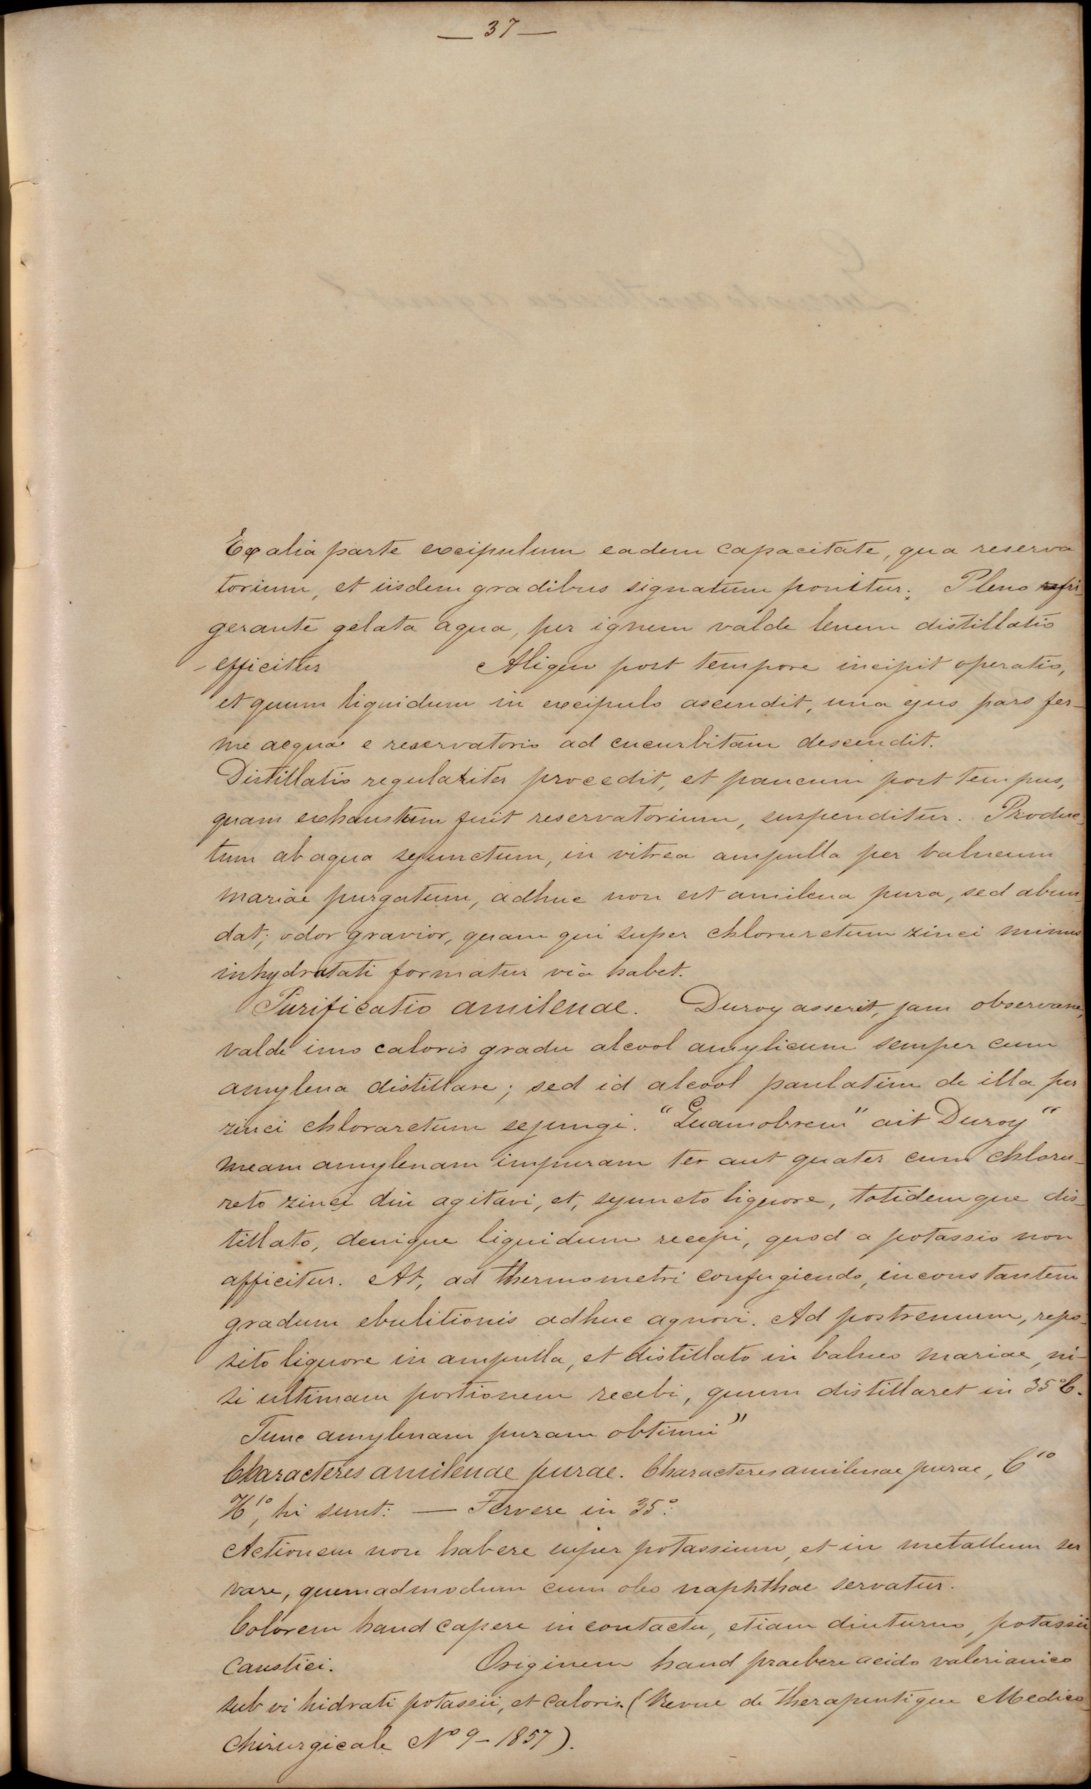 — 37 —
Ex alia parte excipulum eadem capacitate, qua reserva
torium, et iisdem gradibus signatum ponitur. Pleno refri_
gerante gelata aqua, per ignem valde lenem distillatio
efficitur Aliquo post tempore incipit operatio,
et quum liquidum in excipulo ascendit, una ejus pars fer_
me aequa e reservatorio ad cucurbitam descendit.
Distillatio regulariter procedit, et paucum post tempus,
quam exhaustum fuit reservatorium, suspenditur. Produc_
tum ab aqua sejunctum, in vitrea ampulla per balneum
mariae purgatum, adhuc non est amilena pura, sed abun
dat; odor gravior, quam qui super chloruretum zinci minus
inhydratati formatur via habet.
Purificatio amilenae. Duroy asserit, jam observare,
valde imo caloris gradu alcool amylicum semper cum
amylena distillare; sed id alcool paulatim de illa per
zinci chloraretum sejungi. "Quamobrem" ait Duroy "
meam amylenam impuram ter aut quater cum chloru_
reto zinci diu agitavi, et, sejuncto liquore, totidemque dis_
tillato, denique liquidum recepi, quod a potassio non
afficitur. At, ad thermometri confugiendo, inconstantem
gradum ebulitionis adhuc agnovi. Ad postremum, repo_
sito liquore in ampulla, et distillato in balneo mariae, ni_
si ultimam portionem recebi, quum distillaret in 35°C.
Tunc amylenam puram obtinui"
Characteres amilenae purae. Characteres amilenae purae, C¹⁰
H¹⁰, hi sunt: — Fervere in 35°.
Actionem non habere super potassium, et in metallum ser
vare, quemadmodum cum oleo naphthae servatur.
Colorem haud capere in contactu, etiam diuturno, potassii
caustici. Originem haud praebere acido valerianico
sub vi hidrati potassii, et caloris. (Revue de Therapeutique Medico
Chirurgicale Nº 9 - 1857).